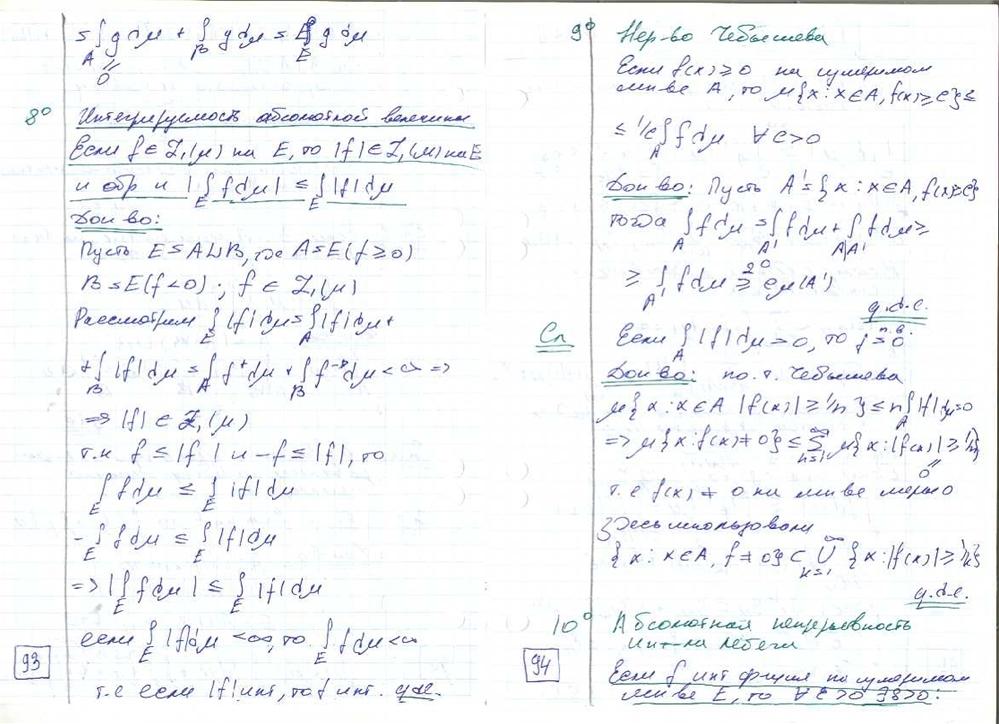 = ∫_A g dμ + ∫_B g dμ = ∫_E g dμ
= 0
8° Интегрируемость абсолютной величины
Если f ∈ L₁(μ) на E, то |f| ∈ L₁(μ) на E
и обр и |∫_E f dμ| ≤ ∫_E |f| dμ
Док-во:
Пусть E = A ⊔ B, где A = E(f ≥ 0)
B = E(f < 0); f ∈ L₁(μ)
Рассмотрим ∫_E |f| dμ = ∫_A |f| dμ +
+ ∫_B |f| dμ = ∫_A f⁺ dμ + ∫_B f⁻ dμ < ∞ ⇒
⇒ |f| ∈ L₁(μ)
т.к f ≤ |f| и -f ≤ |f|, то
∫_E f dμ ≤ ∫_E |f| dμ
- ∫_E f dμ ≤ ∫_E |f| dμ
⇒ |∫_E f dμ| ≤ ∫_E |f| dμ
если ∫_E |f| dμ < ∞, то ∫_E f dμ < ∞
93
т.е если |f| инт, то f инт. q.d.e.
9° Нер-во Чебышева
Если f(x) ≥ 0 на измеримом
мн-ве A, то μ{x : x ∈ A, f(x) ≥ c} ≤
≤ 1/c ∫_A f dμ ∀ c > 0
Док-во: Пусть A' = {x : x ∈ A, f(x) ≥ c}
тогда ∫_A f dμ = ∫_{A'} f dμ + ∫_{A\A'} f dμ ≥
≥ 0
≥ ∫_{A'} f dμ ≥ c μ(A')
q.d.e.
Сл Если ∫_A |f| dμ = 0, то f = 0 п.в.
Док-во: по т. Чебышева
μ{x : x ∈ A |f(x)| ≥ 1/n} ≤ n ∫_A |f| dμ = 0
⇒ μ{x : f(x) ≠ 0} ≤ ∑_{n=1}^∞ μ{x : |f(x)| ≥ 1/n}
= 0
т.е f(x) ≠ 0 на мн-ве меры 0
Здесь использовали
{x : x ∈ A, f ≠ 0} ⊂ ⋃_{k=1}^∞ {x : |f(x)| ≥ 1/k}
q.d.e.
10° Абсолютная непрерывность
инт-ла Лебега
94
Если f инт функция на измеримом
мн-ве E, то ∀ ε > 0 ∃ δ > 0: